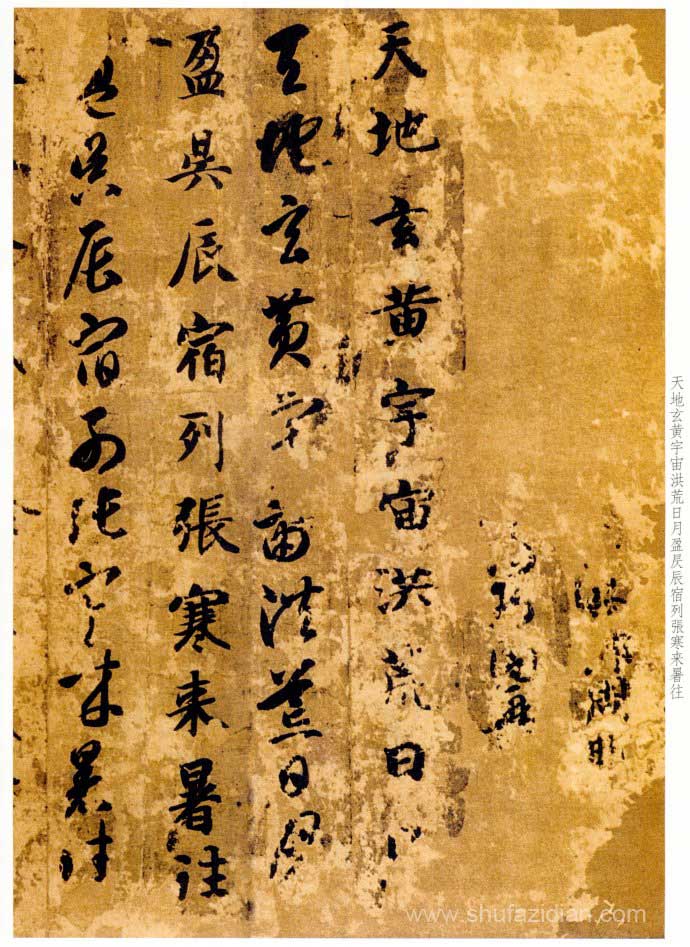 天地玄黄宇宙洪荒日月盈昃辰宿列張寒来暑往
天地玄黄宇宙洪荒日月
天地玄黄宇宙洪荒日月
盈昃辰宿列張寒来暑往
盈昃辰宿列張寒来暑往
www.shufazidian.com